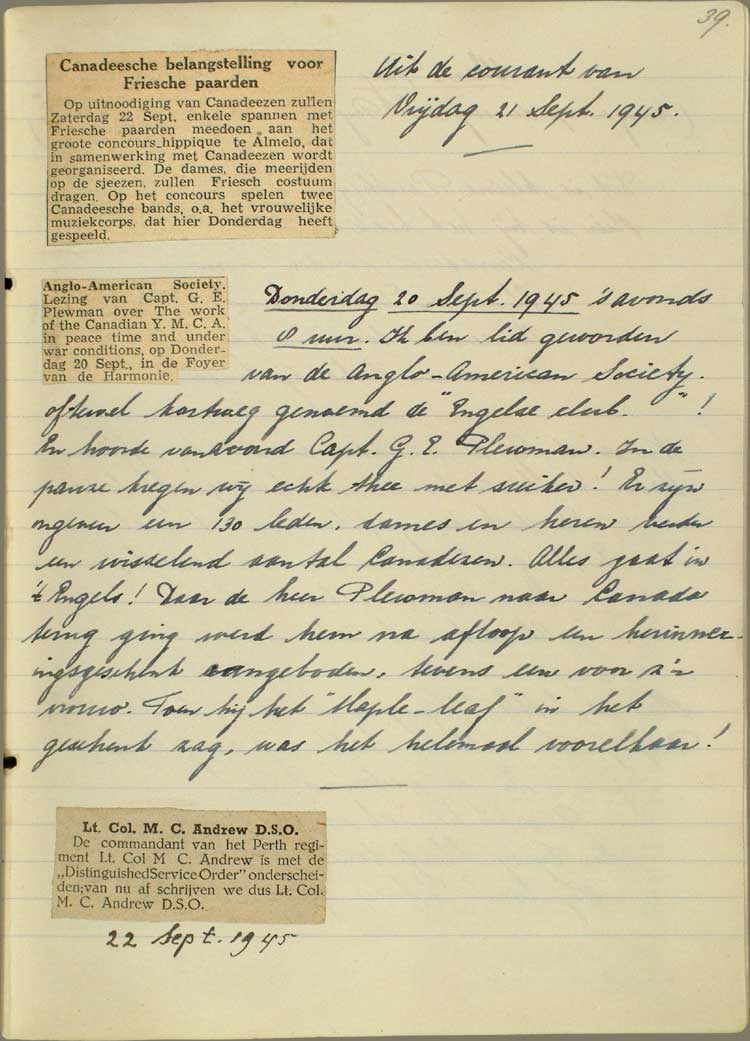 39.
Canadeesche belangstelling voor
Friesche paarden
Op uitnoodiging van Canadeezen zullen
Zaterdag 22 Sept. enkele spannen met
Friesche paarden meedoen aan het
groote concours hippique te Almelo, dat
in samenwerking met Canadeezen wordt
georganiseerd. De dames, die meerijden
op de sjeezen, zullen Friesch costuum
dragen. Op het concours spelen twee
Canadeesche bands, o.a. het vrouwelijke
muziekcorps, dat hier Donderdag heeft
gespeeld.
Uit de courant van
Vrijdag 21 Sept. 1945.
Anglo-American Society.
Lezing van Capt. G. E.
Plewman over The work
of the Canadian Y. M. C. A.
in peace time and under
war conditions, op Donder-
dag 20 Sept., in de Foyer
van de Harmonie.
Donderdag 20 Sept. 1945 's avonds
8 uur. Ik ben lid geworden
van de Anglo-American Society.
oftewel kortweg genoemd de "Engelse club." !
En hoorde vanavond Capt. G. E. Plewman. In de
pauze kregen wij echt thee met suiker! Er zijn
ongeveer een 130 leden, dames en heren verder
een wisselend aantal Canadezen. Alles gaat in
't Engels! Daar de heer Plewman naar Canada
terug ging werd hem na afloop een herinner-
ingsgeschenk aangeboden, tevens een voor z'n
vrouw. Toen hij het "Maple-leaf" in het
geschenk zag, was het helemaal voorelkaar!
Lt. Col. M. C. Andrew D.S.O.
De commandant van het Perth regi-
ment Lt. Col M C. Andrew is met de
„Distinguished Service Order" onderschei-
den; van nu af schrijven we dus Lt. Col.
M. C. Andrew D.S.O.
22 Sept. 1945